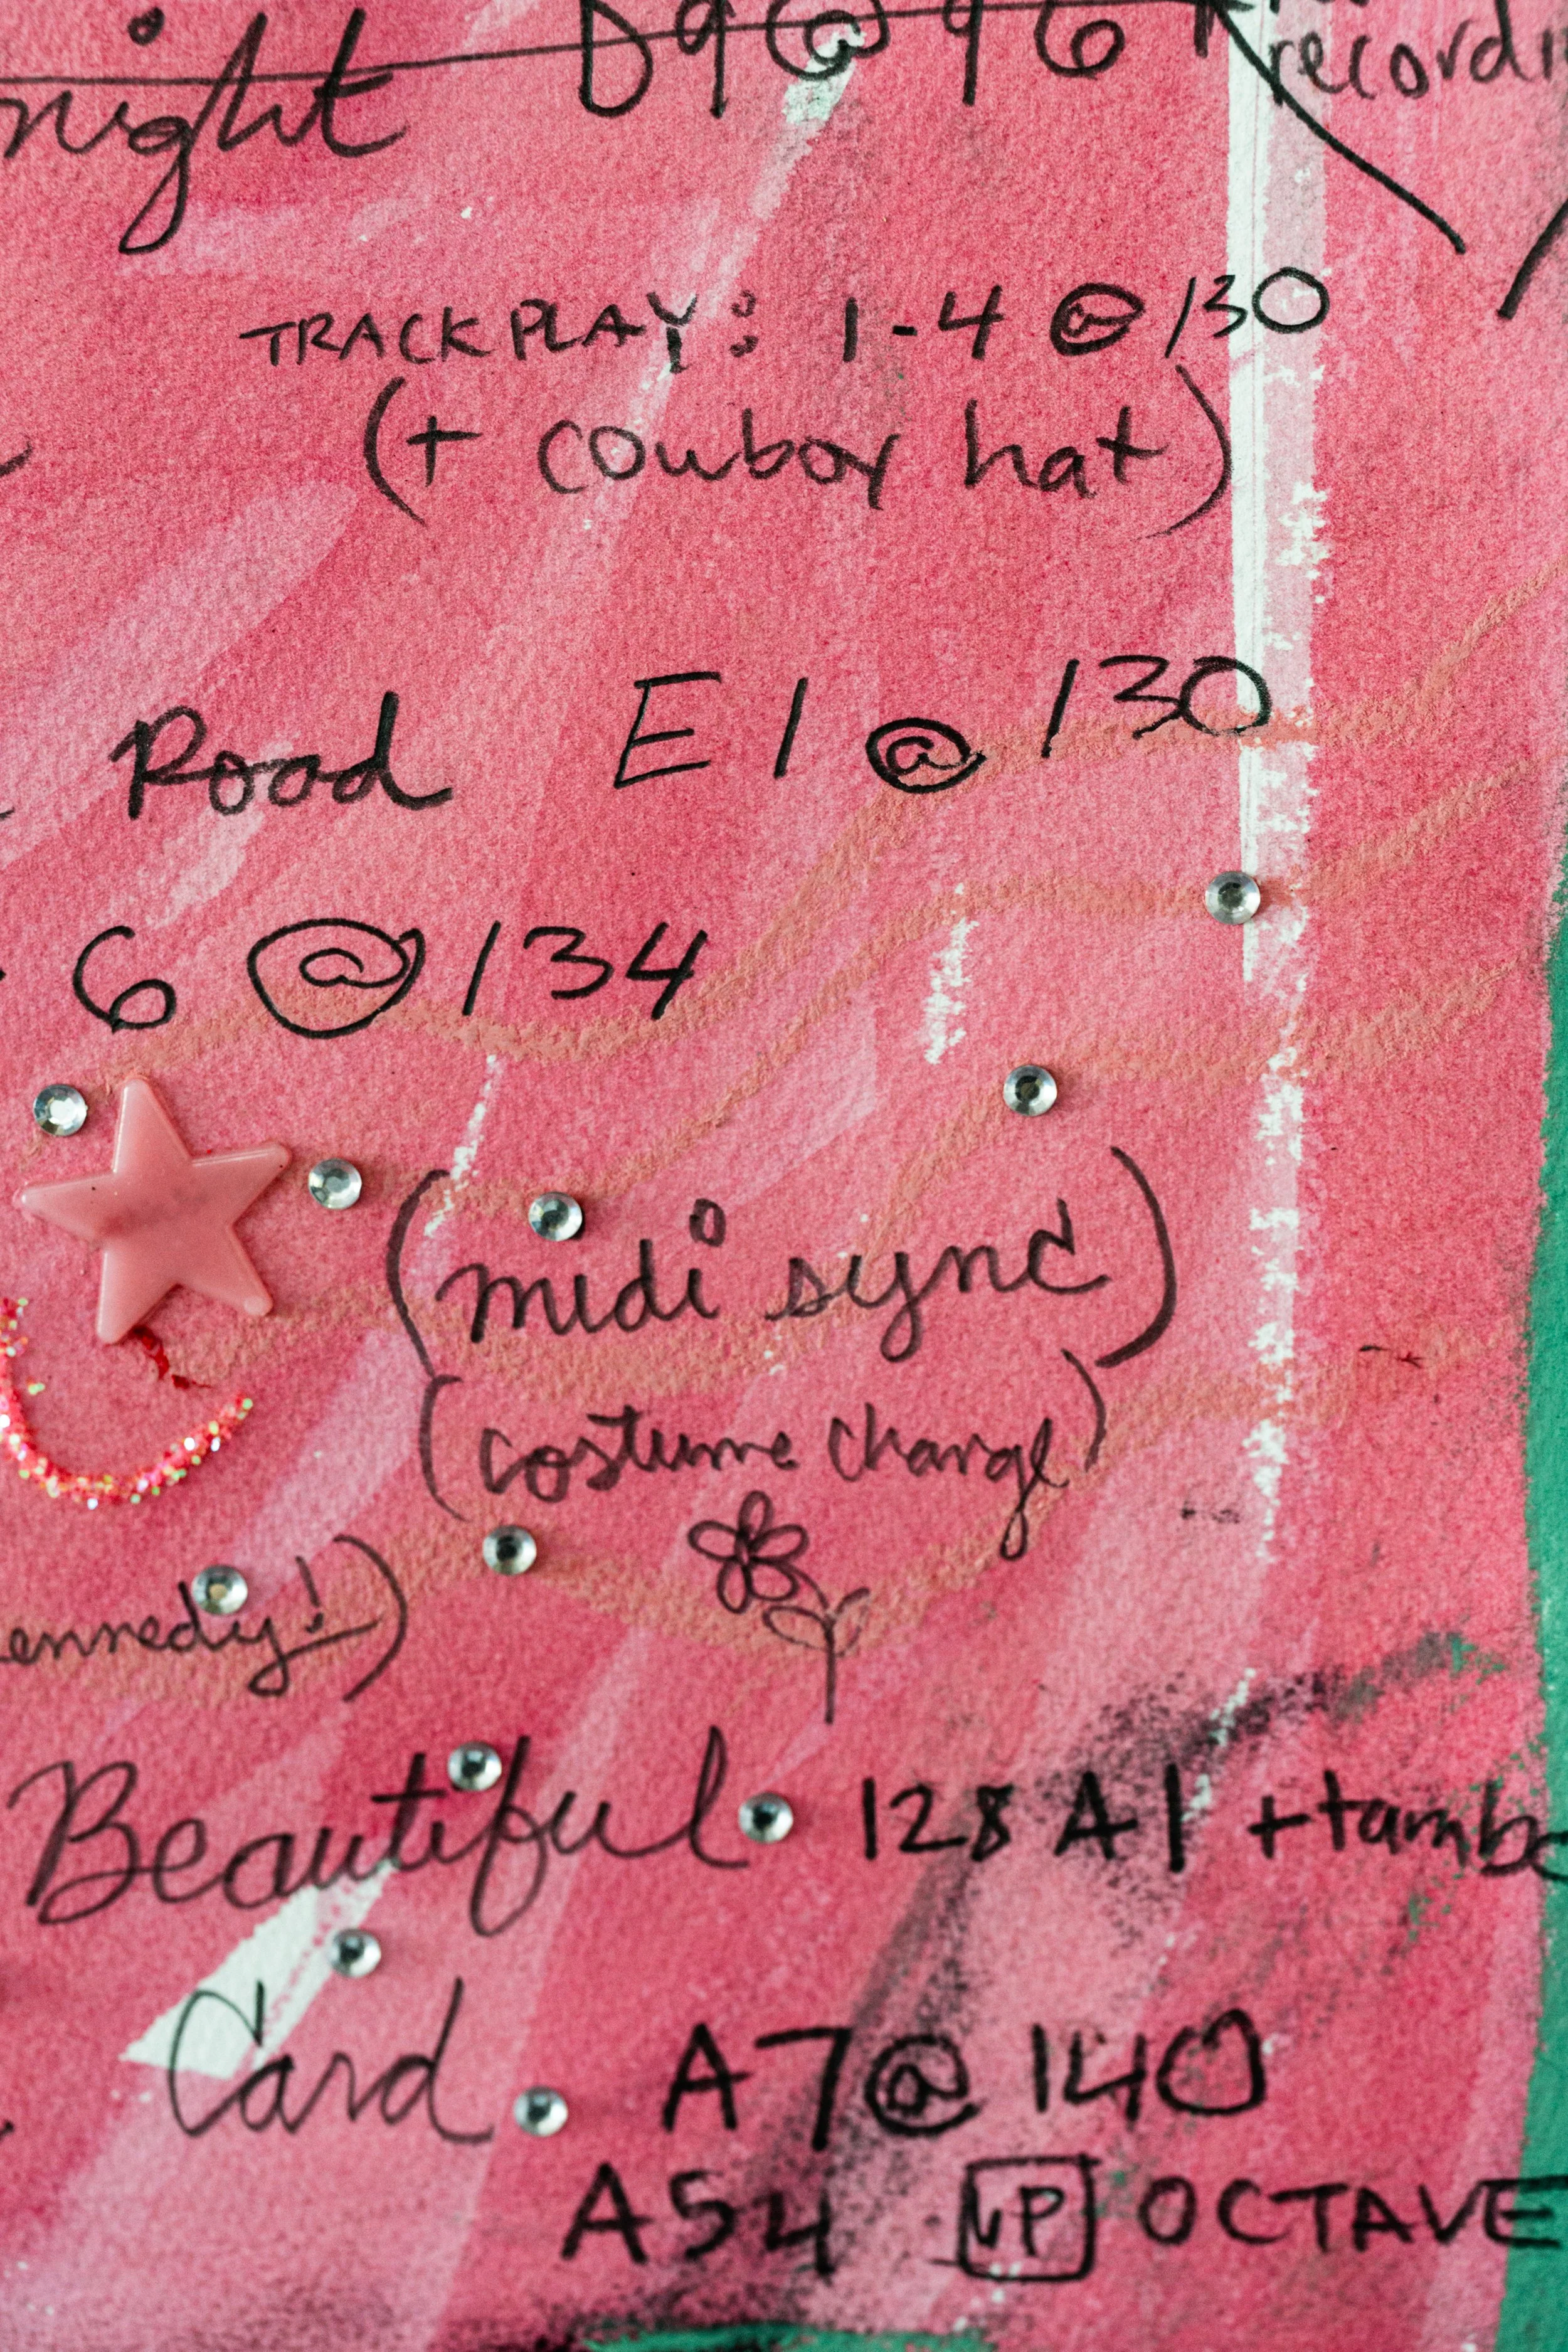 night D9 @ 96
recordi
TRACK PLAY: 1-4 @ 130
(+ cowboy hat)
Road E1 @ 130
6 @ 134
(midi sync)
(costume change)
ennedy!)
Beautiful 128 A1 + tambo
Card A7 @ 140
A54 UP OCTAVE